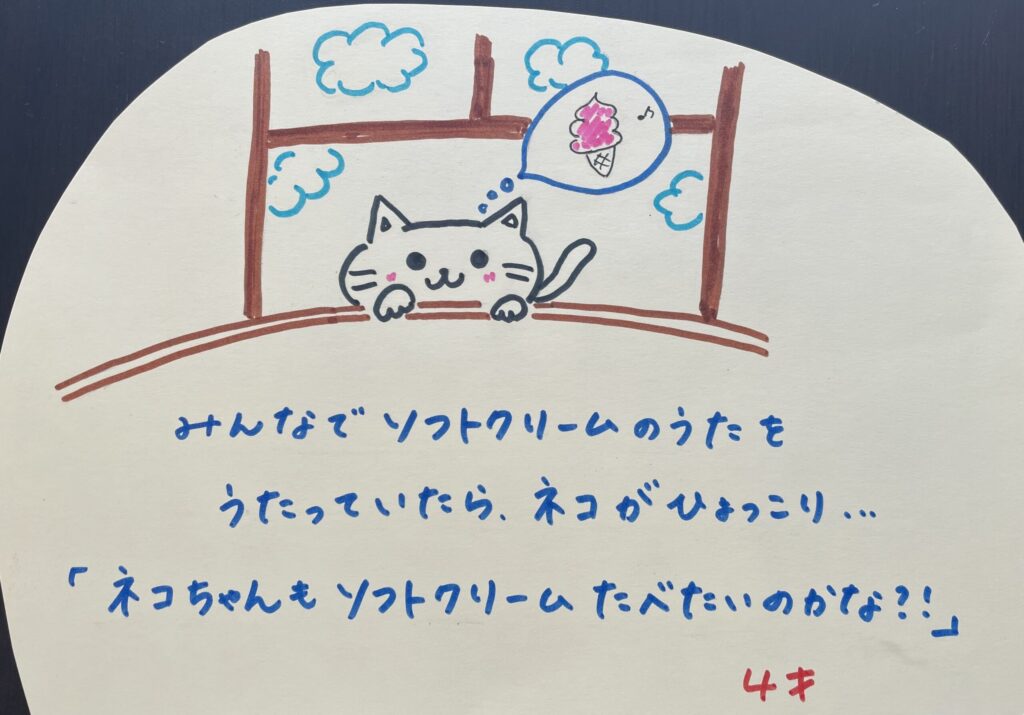 みんなで ソフトクリームのうたを
うたっていたら、ネコがひょっこり...
「ネコちゃんも ソフトクリーム たべたいのかな?!」
4才